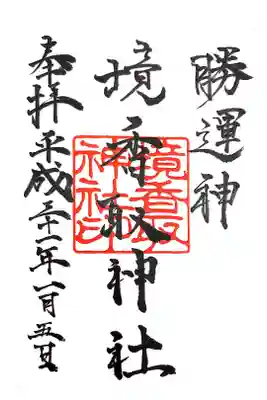 勝運神
境香取神社
境香取神社印
奉拝 平成三十一年一月五日